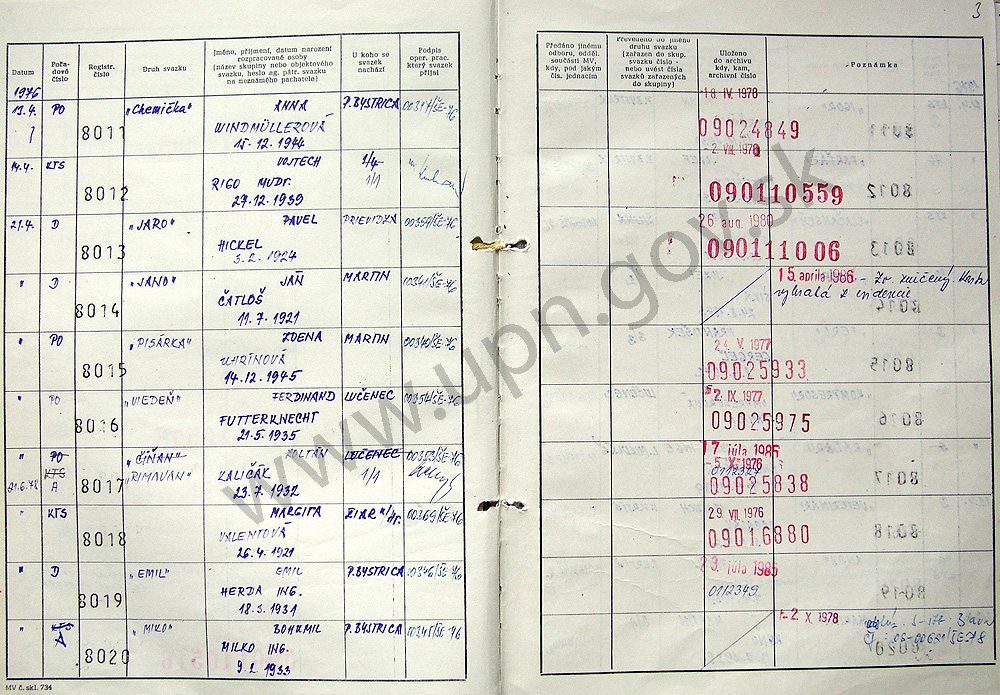 3
Datum
Pořadové číslo
Registr. číslo
Druh svazku
Jméno, příjmení, datum narození
rozpracované osoby
(název skupiny nebo objektového
svazku, heslo ag. pátr. svazku
na neznámého pachatele)
U koho se
svazek
nachází
Podpis
oper. prac.
který svazek
přijal
Předáno jinému
odboru, odděl.
součásti MV,
kdy, pod jakým
čís. jednacím
Převedeno do jiného
druhu svazku
(zařazen do skup.
svazku číslo -
nebo uvést čísla
svazků zařazených
do skupiny)
Uloženo
do archivu
kdy, kam,
archivní číslo
Poznámka
1976
13.4. PO 8011 "Chemička" ANNA P. BYSTRICA 00317/ŠE-76 18 IV. 1978
WINDMÜLLEROVÁ 09024849
15. 12. 1944
14.4. KTS 8012 VOJTECH 1/4 -2. VIII. 1978
RIGO MUDr. 1/1 090110559
27. 12. 1939
21.4. D 8013 "JARO" PAVEL PRIEVIDZA 00359/ŠE-76 26 aug. 1980
HICKEL 090111006
3. 2. 1924
" D 8014 "JANO" JÁN MARTIN 00341/ŠE-76 15 apríla 1986 - Zv. zničený
ČATLOŠ z evidencie
11. 7. 1921
" PO 8015 "PISÁRKA" ZDENA MARTIN 00340/ŠE-76 24. V. 1977
UHRÍNOVÁ 09025933
14. 12. 1945
" PO 8016 "VIEDEŇ" FERDINAND LUČENEC 00354/ŠE-76 2. IX. 1977
FUTTERKNECHT 09025975
21. 5. 1935
" PO 8017 "ČÍŇAN" ZOLTÁN LUČENEC 00353/ŠE-76 17 júla 1985
KTS "RIMAVAN" KALIČÁK 1/1 -5. X. 1976
21.6.78 A 23. 7. 1932 09025838
" KTS 8018 MARGITA ŽIAR n/Hr. 00369/ŠE-76 29. VII. 1976
VALENTOVÁ 09016880
26. 4. 1921
" D 8019 "EMIL" EMIL P. BYSTRICA 00346/ŠE-76 23. júla 1985
HERDA ING. 0112349
18. 3. 1931
" KTS 8020 "MILKO" BOHUMIL P. BYSTRICA 00345/ŠE-76 -2 X. 1978
A MILKO ING.
9. 2. 1933
MV č. skl. 734
www.upn.gov.sk